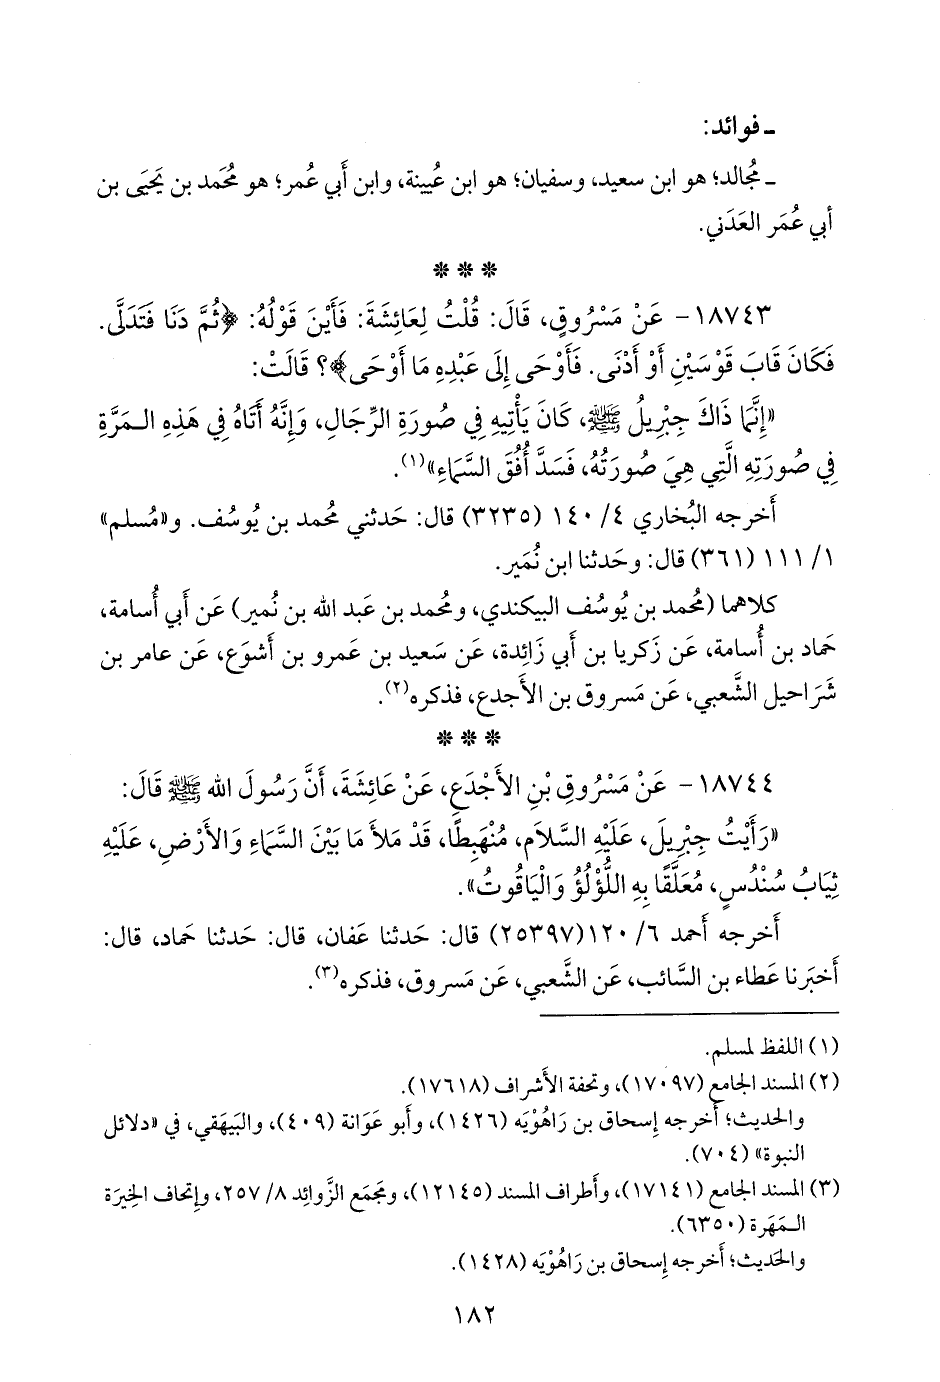 ـ فوائد:
ـ مُجالد؛ هو ابن سعيد، وسفيان؛ هو ابن عُيينة، وابن أَبي عُمر؛ هو مُحَمد بن يَحيَى بن
أبي عُمَر العَدَني.
* * *
١٨٧٤٣ - عَنْ مَسْرُوقٍ، قَالَ: قُلْتُ لِعَائِشَةَ: فَأَيْنَ قَوْلُهُ: ﴿ثُمَّ دَنَا فَتَدَلَّى.
فَكَانَ قَابَ قَوْسَيْنِ أَوْ أَدْنَى. فَأَوْحَى إِلَى عَبْدِهِ مَا أَوْحَى﴾؟ قَالَتْ:
«إِنَّمَا ذَاكَ جِبْرِيلُ ﷺ، كَانَ يَأْتِيهِ فِي صُورَةِ الرِّجَالِ، وَإِنَّهُ أَتَاهُ فِي هَذِهِ الـمَرَّةِ
فِي صُورَتِهِ الَّتِي هِيَ صُورَتُهُ، فَسَدَّ أُفُقَ السَّمَاءِ»(١).
أَخرجه البُخاري ٤/ ١٤٠ (٣٢٣٥) قال: حَدثني مُحمد بن يُوسُف. و«مُسلم»
١/ ١١١ (٣٦١) قال: وحَدثنا ابن نُمَير.
كلاهما (مُحمد بن يُوسُف البيكندي، ومُحمد بن عَبد الله بن نُمير) عَن أَبي أُسامة،
حَماد بن أُسامة، عَن زَكريا بن أَبي زَائِدة، عَن سَعيد بن عَمرو بن أَشوَع، عَن عامر بن
شَرَاحيل الشَّعبي، عَن مَسروق بن الأَجدع، فذكره(٢).
* * *
١٨٧٤٤ - عَنْ مَسْرُوقِ بْنِ الأَجْدَعِ، عَنْ عَائِشَةَ، أَنَّ رَسُولَ الله ﷺ قَالَ:
«رَأَيْتُ جِبْرِيلَ، عَلَيْهِ السَّلَام، مُنْهَبِطًا، قَدْ مَلَأَ مَا بَيْنَ السَّمَاءِ وَالأَرْضِ، عَلَيْهِ
ثِيَابُ سُنْدُسٍ، مُعَلَّقًا بِهِ اللُّؤْلُؤُ وَالْيَاقُوتُ».
أَخرجه أَحمد ٦/ ١٢٠(٢٥٣٩٧) قال: حَدثنا عَفان، قال: حَدثنا حَماد، قال:
أَخبَرنا عَطاء بن السَّائب، عَن الشَّعبي، عَن مَسروق، فذكره(٣).
(١) اللفظ لمسلم.
(٢) المسند الجامع (١٧٠٩٧)، وتحفة الأَشراف (١٧٦١٨).
والحديث؛ أَخرجه إِسحاق بن رَاهُوْيَه (١٤٢٦)، وأَبو عَوَانة (٤٠٩)، والبَيهَقي، في «دلائل
النبوة» (٧٠٤).
(٣) المسند الجامع (١٧١٤١)، وأَطراف المسند (١٢١٤٥)، ومَجمَع الزَّوائِد ٨/ ٢٥٧، وإِتحاف الخِيرَة
الـمَهَرة (٦٣٥٠).
والحَديث؛ أَخرجه إِسحاق بن رَاهُوْيَه (١٤٢٨).
١٨٢